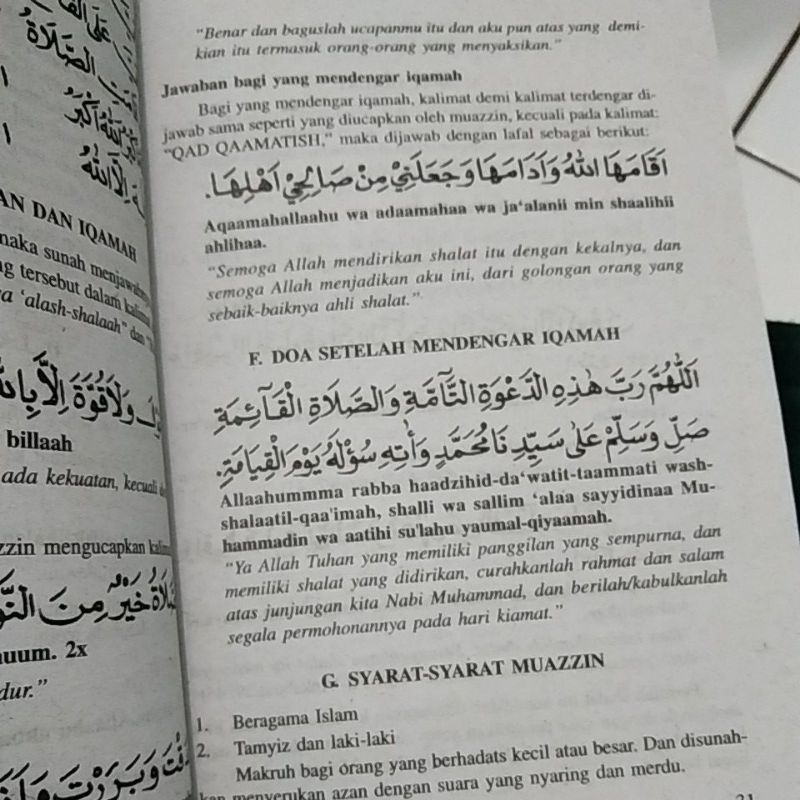 عَلَى الْفَ
الصَّلَاةُ
اَللهُ اَكْبَرُ
اِلَّا اللهُ
AN DAN IQAMAH
maka sunah menjawabnya
ng tersebut dalam kalimat
ya ‘alash-shalaah” dan
وَلَا قُوَّةَ اِلَّا بِاللهِ
billaah
ada kekuatan, kecuali
azzin mengucapkan kalimat
خَيْرٌ مِنَ النَّوْ
uum. 2x
dur.”
وَبَرَرْتَ وَاَنَا
“Benar dan baguslah ucapanmu itu dan aku pun atas yang demi-
kian itu termasuk orang-orang yang menyaksikan.”
Jawaban bagi yang mendengar iqamah
Bagi yang mendengar iqamah, kalimat demi kalimat terdengar di-
jawab sama seperti yang diucapkan oleh muazzin, kecuali pada kalimat:
“QAD QAAMATISH,” maka dijawab dengan lafal sebagai berikut:
اَقَامَهَا اللهُ وَاَدَامَهَا وَجَعَلَنِيْ مِنْ صَالِحِيْ اَهْلِهَا.
Aqaamahallaahu wa adaamahaa wa ja‘alanii min shaalihii
ahlihaa.
“Semoga Allah mendirikan shalat itu dengan kekalnya, dan
semoga Allah menjadikan aku ini, dari golongan orang yang
sebaik-baiknya ahli shalat.”
F. DOA SETELAH MENDENGAR IQAMAH
اَللّٰهُمَّ رَبَّ هٰذِهِ الدَّعْوَةِ التَّآمَّةِ وَالصَّلَاةِ الْقَآئِمَةِ
صَلِّ وَسَلِّمْ عَلَى سَيِّدِنَا مُحَمَّدٍ وَاٰتِهِ سُؤْلَهُ يَوْمَ الْقِيَامَةِ.
Allaahummma rabba haadzihid-da‘watit-taammati wash-
shalaatil-qaa'imah, shalli wa sallim ‘alaa sayyidinaa Mu-
hammadin wa aatihi su'lahu yaumal-qiyaamah.
“Ya Allah Tuhan yang memiliki panggilan yang sempurna, dan
memiliki shalat yang didirikan, curahkanlah rahmat dan salam
atas junjungan kita Nabi Muhammad, dan berilah/kabulkanlah
segala permohonannya pada hari kiamat.”
G. SYARAT-SYARAT MUAZZIN
1. Beragama Islam
2. Tamyiz dan laki-laki
Makruh bagi orang yang berhadats kecil atau besar. Dan disunah-
kan menyerukan azan dengan suara yang nyaring dan merdu.
21